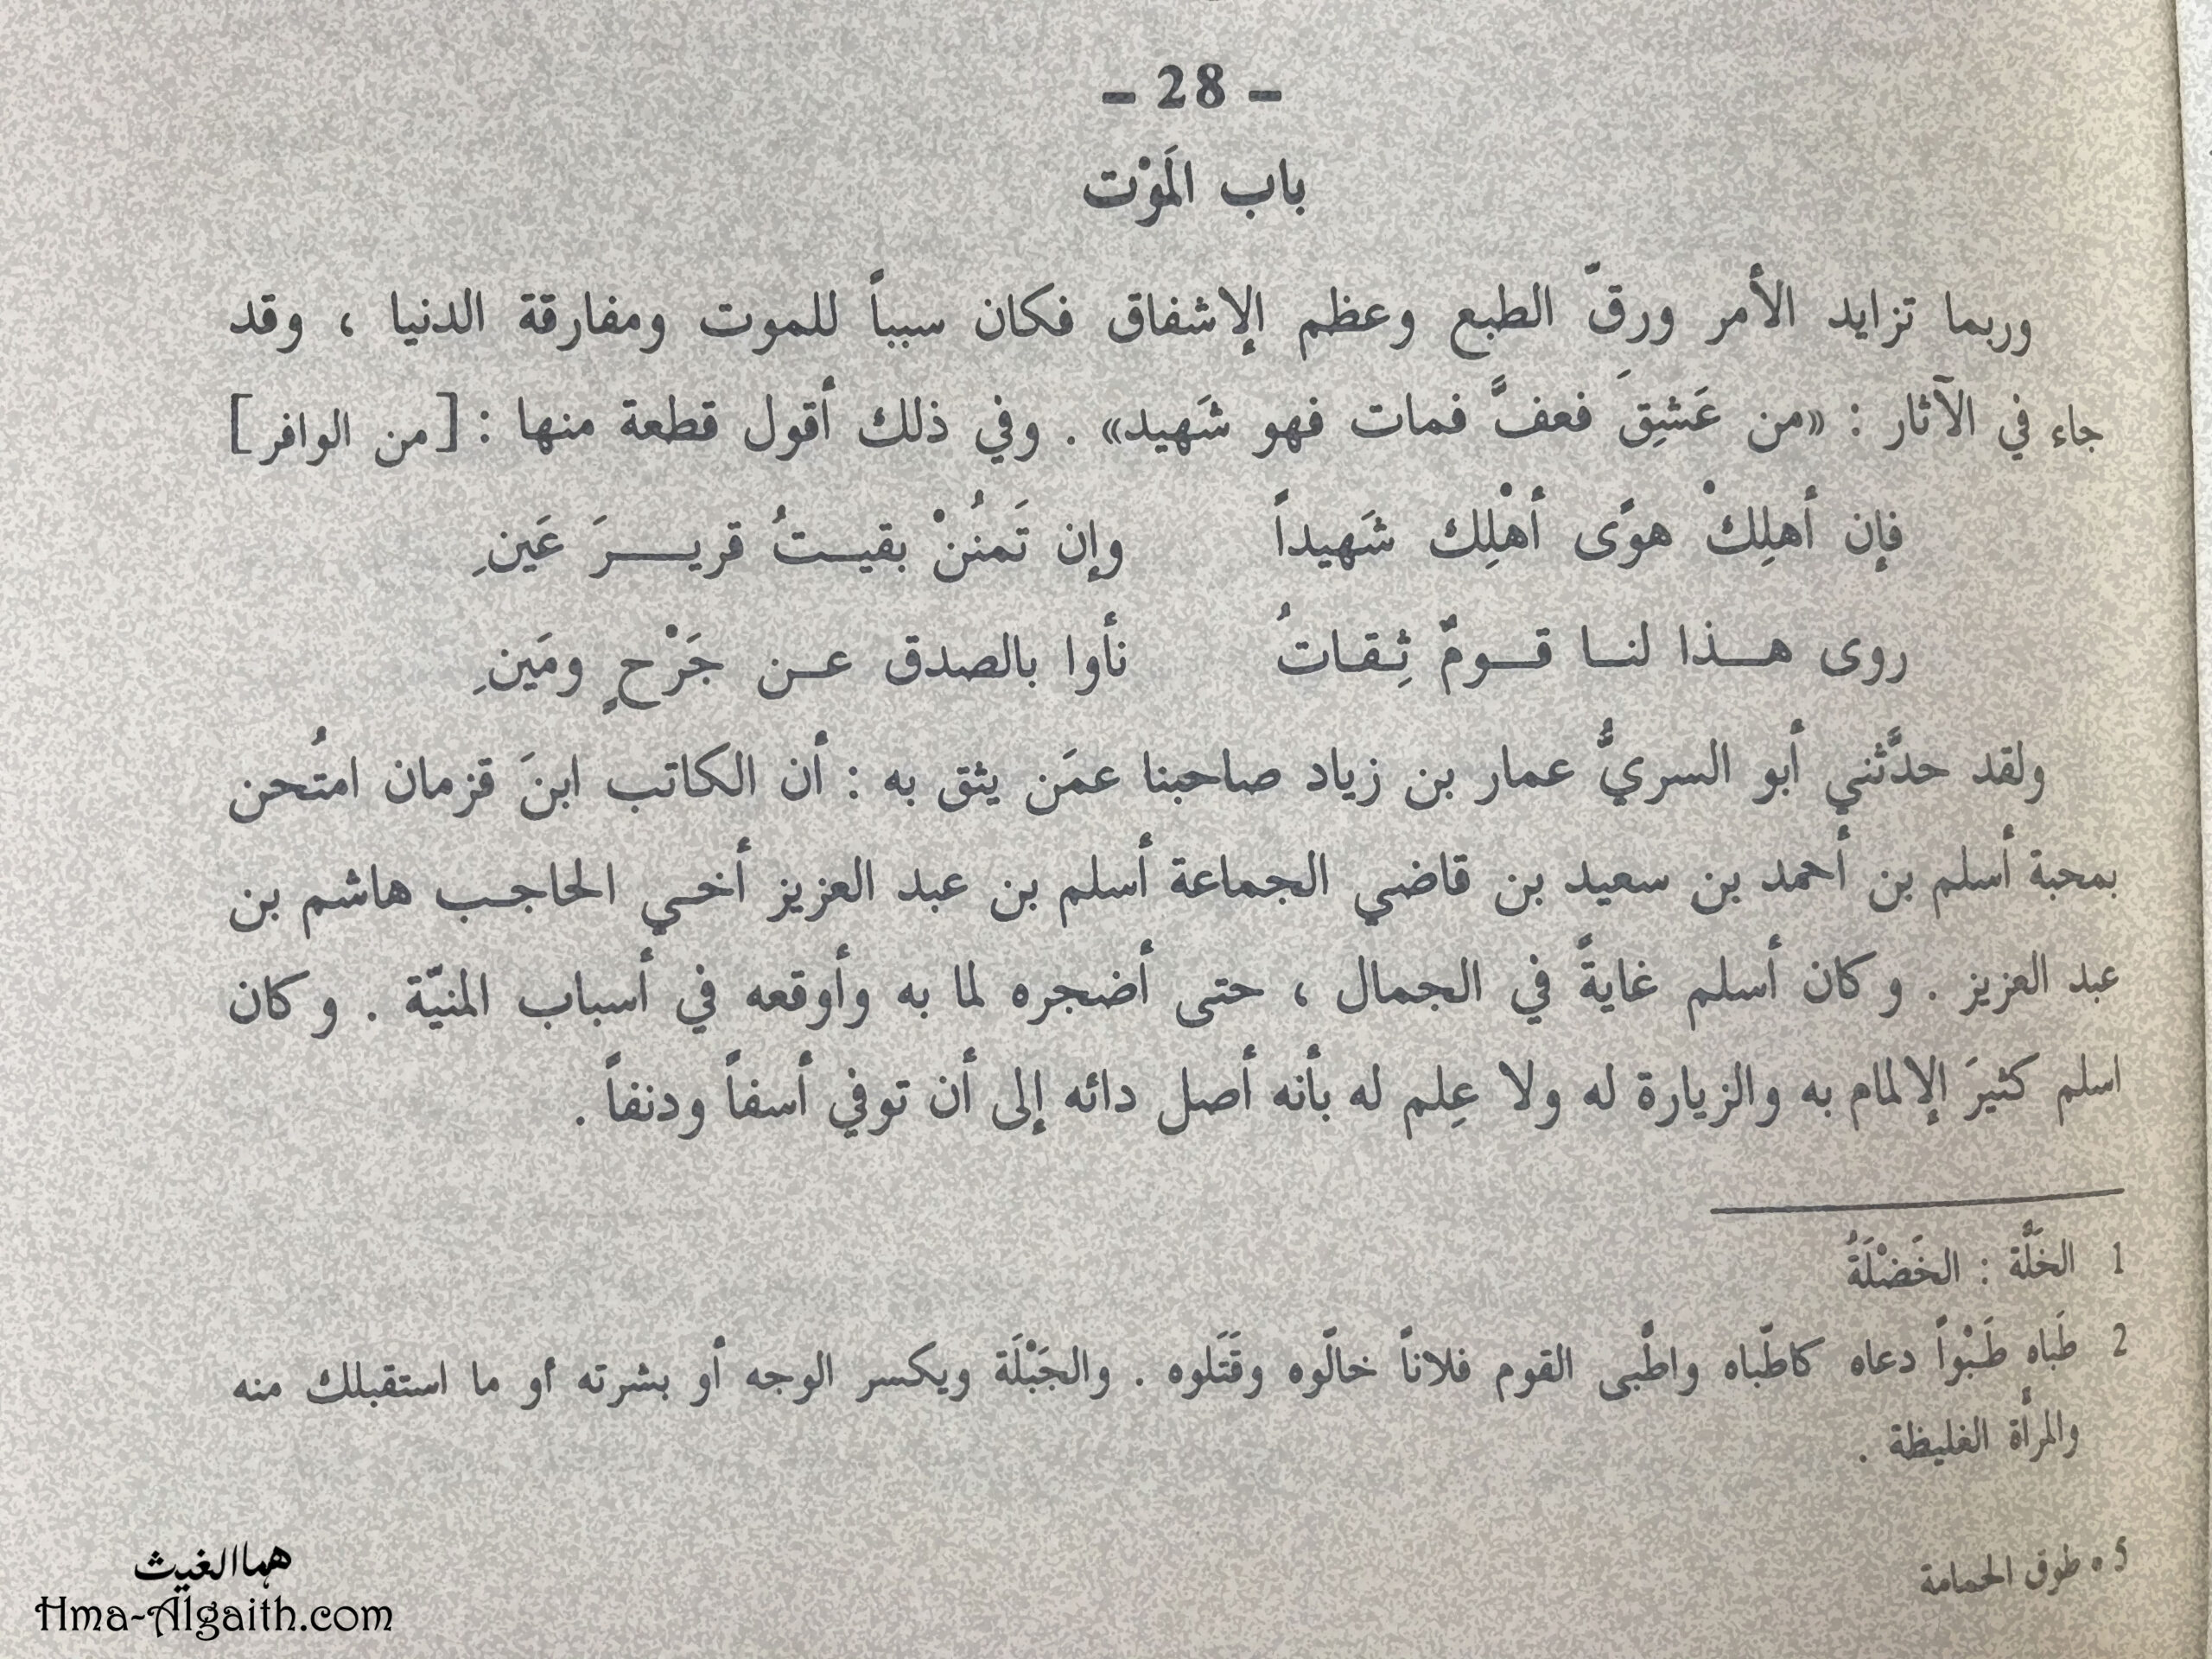 - 28 -
باب المَوْت
وربما تزايد الأمر ورقّ الطبع وعظم الإشفاق فكان سبباً للموت ومفارقة الدنيا ، وقد
جاء في الآثار : «من عَشِقَ فعفَّ فمات فهو شَهيد» . وفي ذلك أقول قطعة منها : [من الوافر]
فإن أهلِكْ هوًى أهْلِك شَهيداً وإن تَمنُنْ بقيتُ قريرَ عَينِ
روى هذا لنا قومٌ ثِقاتُ نأوا بالصدق عن جَرْحٍ ومَينِ
ولقد حدَّثني أبو السريُّ عمار بن زياد صاحبنا عمَن يثق به : أن الكاتب ابنَ قزمان امتُحن
بمحبة أسلم بن أحمد بن سعيد بن قاضي الجماعة أسلم بن عبد العزيز أخي الحاجب هاشم بن
عبد العزيز . وكان أسلم غايةً في الجمال ، حتى أضجره لما به وأوقعه في أسباب المنيّة . وكان
اسلم كثيرَ الإلمام به والزيارة له ولا عِلم له بأنه أصل دائه إلى أن توفي أسفاً ودنفاً .
1 الخَلَّة : الخَضْلَةُ
2 طَباه طَبْواً دعاه كاطّباه واطّبى القوم فلاناً خالّوه وقَتَلوه . والجَبْلَة ويكسر الوجه أو بشرته أو ما استقبلك منه
والمرأة الغليظة .
5 • طوق الحمامة
هما الغيث
Hma-Algaith.com